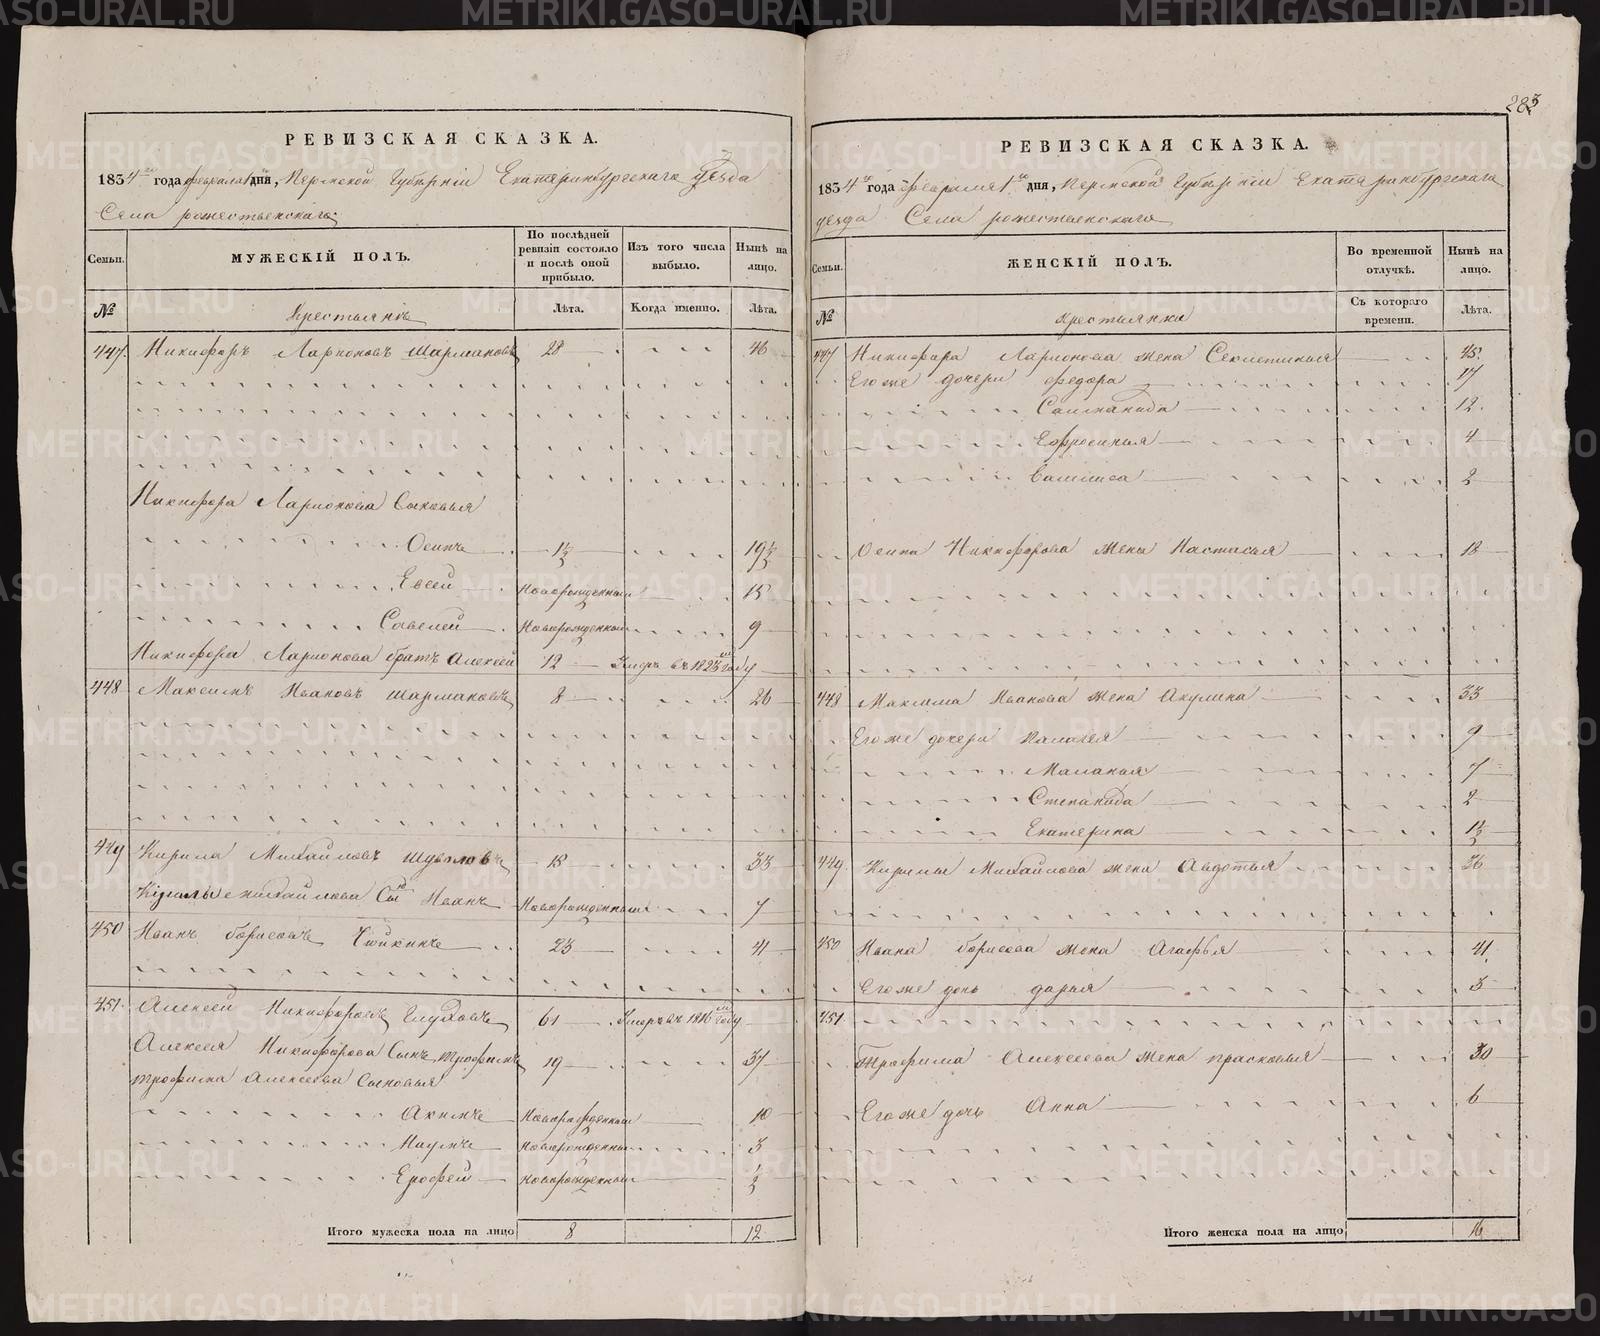 283
РЕВИЗСКАЯ СКАЗКА.
1834 года февраля 1 дня, Пермской Губерніи Екатеринбургскаго уезда
Села рожественскаго
Семьи.
МУЖЕСКІЙ ПОЛЪ.
По послѣдней ревизіи состояло и послѣ оной прибыло.
Изъ того числа выбыло.
Нынѣ на лицо.
№
Крестьянъ
Лѣта.
Когда именно.
Лѣта.
447. Никифоръ Ларионовъ Шармановъ 28 46
Никифора Ларионова Сыновья
Осипъ 1½ 19½
Евсей Новорожденный 15
Савелей Новорожденный 9
Никифора Ларионова братъ Алексей 12 Умеръ въ 1823 году
448 Максимъ Ивановъ Шармановъ 8 26
449 Кирила Михайловъ 15 33
Кирилы Михайлова Сынъ Иванъ Новорожденный 7
450 Иванъ борисовъ Чюйкинъ 23 41
451. Алексей Никифоровъ Глуховъ 61 Умеръ въ 1816 году
Алексея Никифорова Сынъ Трофимъ 19 37
Трофима Алексеева Сыновья
Акимъ Новорожденный 10
Наумъ Новорожденный 3
Ерофей Новорожденный ½
Итого мужеска пола на лицо 8 12
РЕВИЗСКАЯ СКАЗКА.
1834 года февраля 1 дня, Пермской Губерніи Екатеринбургскаго
уезда Села рожественскаго
Семьи.
ЖЕНСКІЙ ПОЛЪ.
Во временной отлучкѣ.
Нынѣ на лицо.
№
Крестьянки
Съ котораго времени.
Лѣта.
447 Никифора Ларионова жена Секлетинья 45.
Его же дочери федора 17
Соломанида 12.
Ефросинья 4
Василиса 2
Осипа Никифорова жена Настасья 18
448 Максима Иванова жена Акулина 33
Его же дочери Палагея 9
Маланья 7
Степанида 2
Екатерина 1½
449 Кирилы Михайлова жена Авдотья 36
450 Ивана борисова жена Агафья 41.
Его же дочь дарья 3
451.
Трофима Алексеева жена прасковья 30
Его же дочь Анна 6
Итого женска пола на лицо 16
METRIKI.GASO-URAL.RU